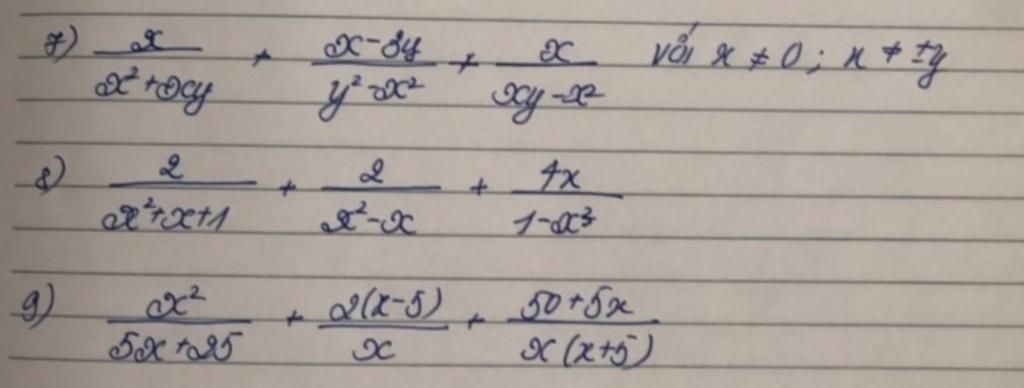 7) x/(x²+xy) + (x-3y)/(y²-x²) + x/(xy-x²) với x ≠ 0; x ≠ ±y
8) 2/(x²+x+1) + 2/(x²-x) + 4x/(1-x³)
9) x²/(5x+25) + 2(x-5)/x + (50+5x)/(x(x+5))